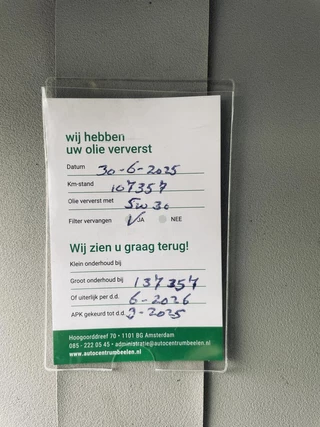 wij hebben
uw olie ververst
Datum 30-6-2025
Km-stand 107357
Olie ververst met 5w30
Filter vervangen V JA NEE
Wij zien u graag terug!
Klein onderhoud bij
Groot onderhoud bij 137357
Of uiterlijk per d.d. 6-2026
APK gekeurd tot d.d. 9-2025
Hoogoorddreef 70 • 1101 BG Amsterdam
085 - 222 05 45 • administratie@autocentrumbeelen.nl
www.autocentrumbeelen.nl